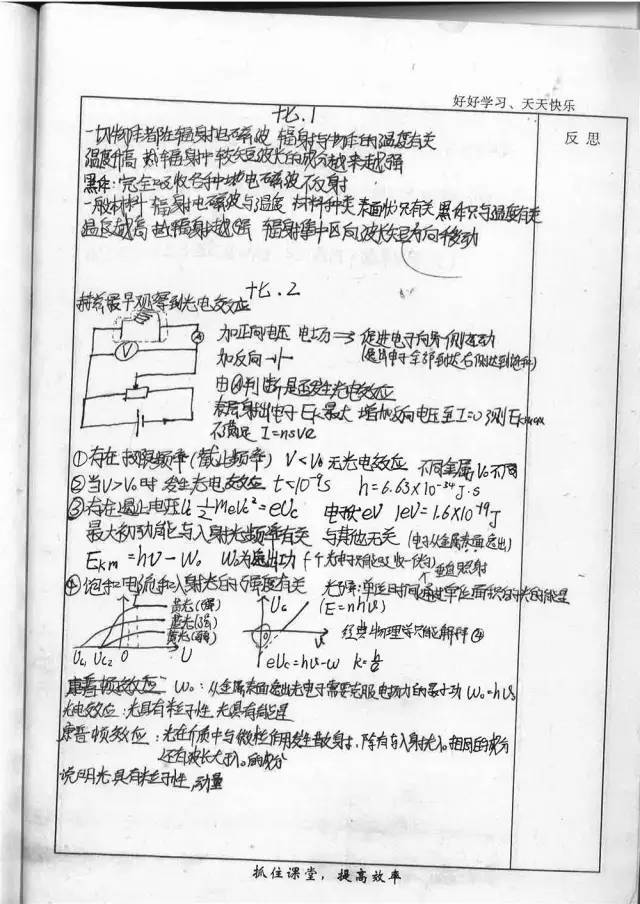 好好学习、天天快乐
反思
十七.1
一切物体都在辐射电磁波 辐射与物体的温度有关
温度升高 热辐射中较短波长的成分越来越强
黑体:完全吸收各种电磁波不反射
一般材料 辐射电磁波与温度 材料种类 表面状况有关 黑体只与温度有关
温度越高 辐射越强 辐射集中区向波长短方向移动
十七.2
赫兹最早观察到光电效应
A
V
加正向电压 电场⇒促进电子向右侧运动
加反向
由A判断是否发生光电效应
表层射出电子Ek最大 增加反向电压至I=0 测Ekmax
不满足 I=nsve
①存在极限频率(截止频率) ν<ν0 无光电效应 不同金属ν0不同
②当ν>ν0时 发生光电效应 t<10⁻⁹s h=6.63×10⁻³⁴J·s
③存在遏止电压Uc ½meVc²=eUc 电子伏eV 1eV=1.6×10⁻¹⁹J
最大初动能与入射光频率有关 与其他无关 (电子从金属表面逸出)
Ekm=hν-W0 W0为逸出功 (个光电子只能吸收一份光)
垂直照射
④饱和电流和入射光的强度有关 光强:单位时间通过单位面积的光的能量
(E=nhν)
蓝光(强)
蓝光(弱)
黄光(弱)
Uc1 Uc2 0 U
Uc
ν
经典物理学只能解释④
eUc=hν-w k=h/e
康普顿效应 W0:从金属表面逸出光电子需要克服电场力的最小功 W0=hν0
光电效应:光具有粒子性 光具有能量
康普顿效应:光在介质中与微粒作用发生散射,除有与入射光λ0相同的成分
还有波长大于λ0的成分
说明光具有粒子性,动量
抓住课堂,提高效率